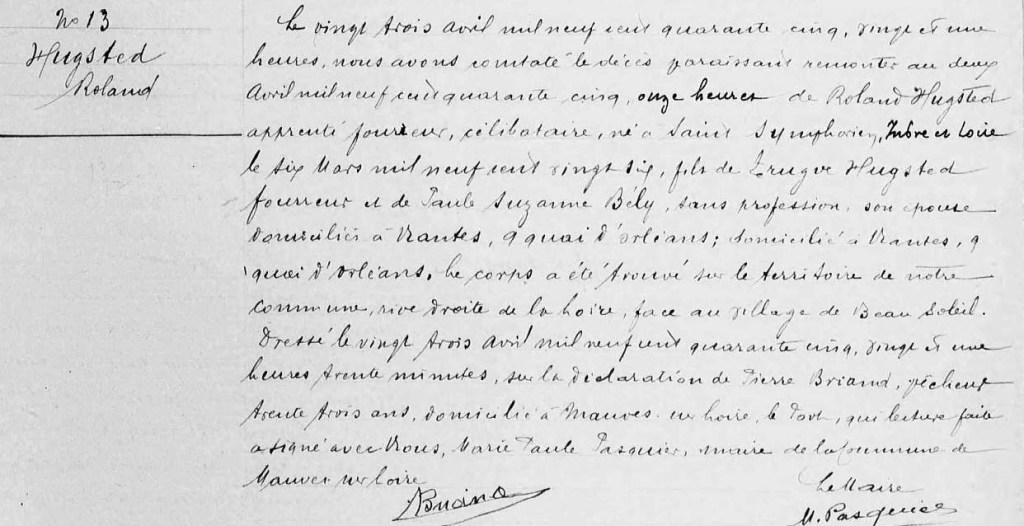 No 13
Hugsted
Roland
Le vingt trois avril mil neuf cent quarante cinq, vingt et une
heures, nous avons constaté le décès paraissant remonter au deux
Avril mil neuf cent quarante cinq, onze heures de Roland Hugsted
apprenti fourreur, célibataire, né à Saint Symphorien, Indre et Loire
le six Mars mil neuf cent vingt six, fils de Trugve Hugsted
fourreur et de Paule Suzanne Bély, sans profession, son épouse
domiciliés à Nantes, 9 quai d'Orléans; domicilié à Nantes, 9
quai d'Orléans. Le corps a été trouvé sur le territoire de notre
commune, rive droite de la Loire, face au village de Beau Soleil.
Dressé le vingt trois Avril mil neuf cent quarante cinq, vingt et une
heures trente minutes, sur la déclaration de Pierre Briand, pêcheur
trente trois ans, domicilié à Mauves sur Loire, le Port, qui lecture faite
a signé avec Nous, Marie Paule Pasquier, maire de la Commune de
Mauves sur Loire
Le Maire
Briand
M. Pasquier